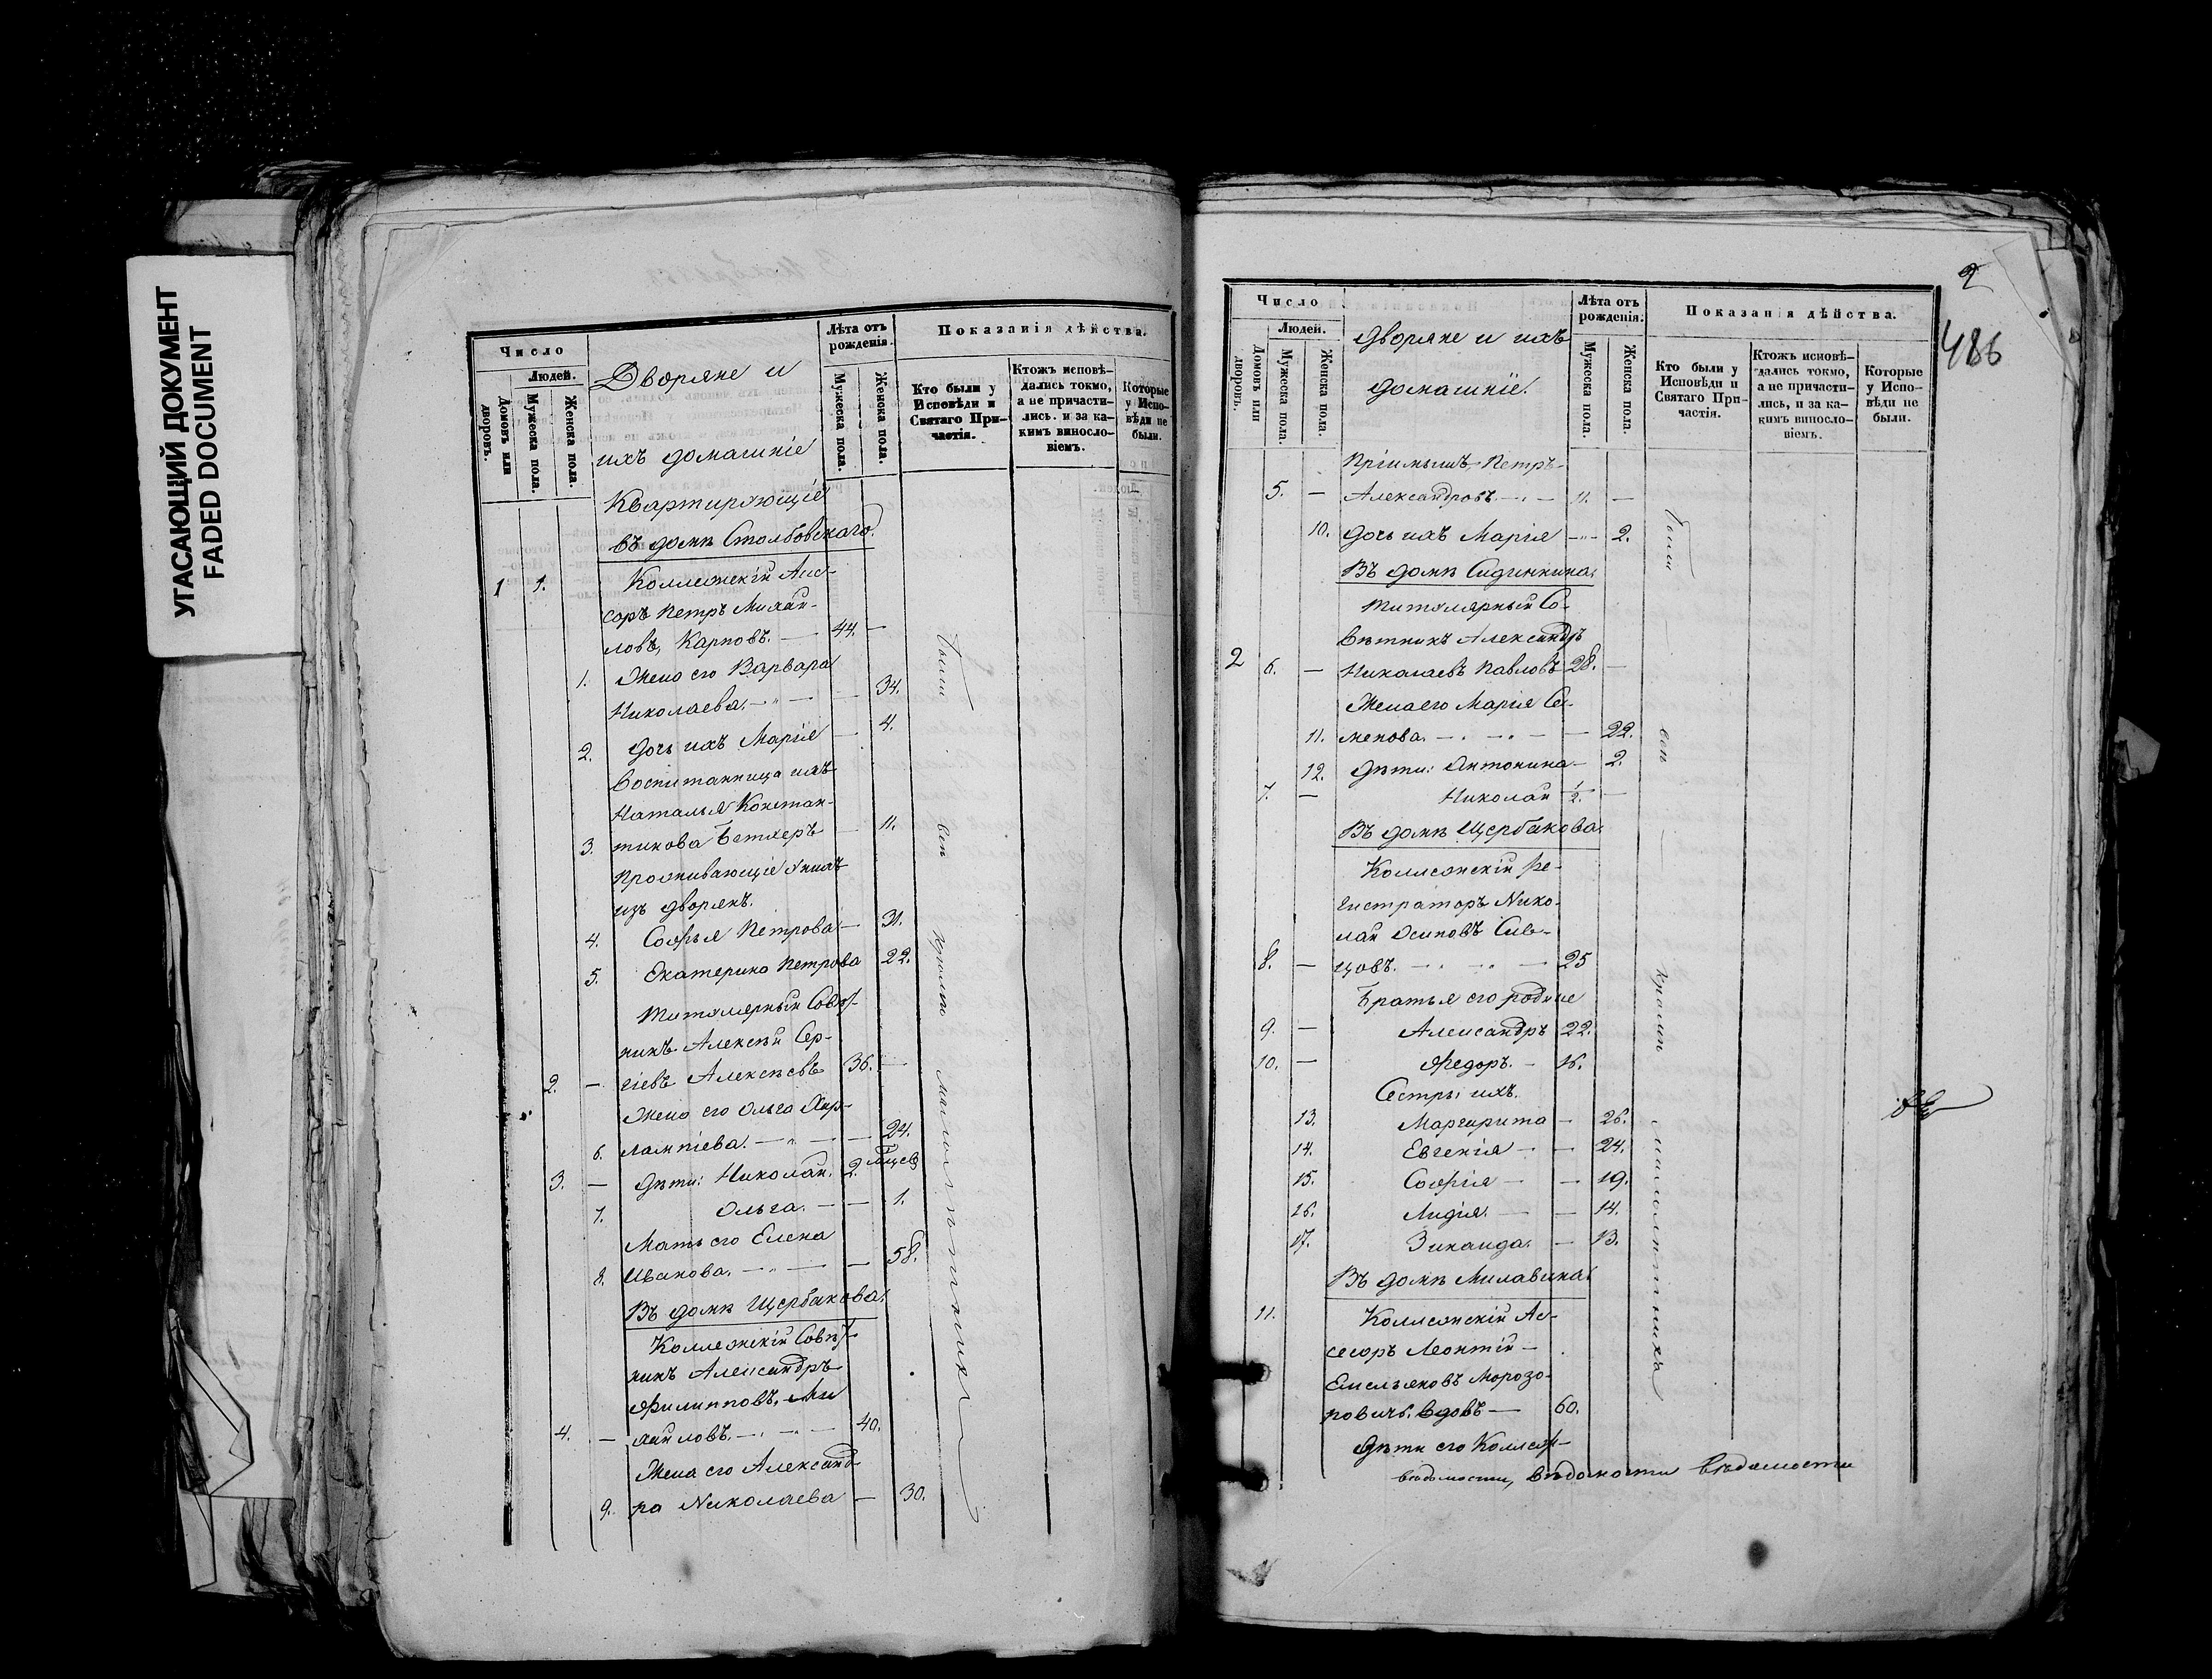 УГАСАЮЩИЙ ДОКУМЕНТ
FADED DOCUMENT
Число
Людей.
Домовъ или дворовъ.
Мужеска пола.
Женска пола.
Дворяне и
ихъ домашніе
Лѣта отъ рожденія.
Мужеска пола.
Женска пола.
Показанія дѣйства.
Кто были у
Исповѣди и
Святаго При-
частія.
Ктожъ исповѣ-
дались токмо,
а не причасти-
лись. и за ка-
кимъ винословіемъ.
Которые
у Испо-
вѣди не
были.
Квартирующіе
въ домѣ Столбовскаго.
1 1. Коллежскій Асес-
соръ Петръ Михай-
ловъ, Карповъ. — 44. —
1. Жена его Варвара
Николаева. — 34.
2. Дочь ихъ Марія — 4.
Воспитанница ихъ
Наталья Констан-
3. тинова Бетхеръ — 11.
Проживающіе у нихъ
изъ дворянъ.
4. Софья Петрова — 31.
5. Екатерина Петрова 22.
Титулярный Совѣт-
никъ Алексѣй Сер-
2. — гіевъ Алексѣевъ 36. —
Жена его Ольга Хар-
6. лампіева. — 24.
3. — Дѣти: Николай. 2.
7. Ольга. — 1.
Мать его Елена
8. Иванова. — 58.
Въ домѣ Щербакова.
Коллежскій Совѣт-
никъ Александръ
Филипповъ, Ми
4. — хайловъ. — 40.
Жена его Александ-
9. ра Николаева — 30.
были
всѣ
кромѣ
малолѣтнихъ
2
486
Число
Людей.
Домовъ или дворовъ.
Мужеска пола.
Женска пола.
Дворяне и ихъ
домашніе.
Лѣта отъ рожденія.
Мужеска пола.
Женска пола.
Показанія дѣйства.
Кто были у
Исповѣди и
Святаго При-
частія.
Ктожъ исповѣ-
дались токмо,
а не причасти-
лись, и за ка-
кимъ винословіемъ.
Которые
у Испо-
вѣди не
были.
Пріимышъ, Петръ
5. — Александровъ. — 11. —
10. Дочь ихъ Марія — 2.
Въ домѣ Сидинкина.
Титулярный Со-
вѣтникъ Александръ
2 6. — Николаевъ Павловъ 28. —
Жена его Марія Се-
11. менова. — 22.
12. Дѣти: Антонина — 2.
7. — Николай 1/2. —
Въ домѣ Щербакова.
Коллежскій Ре-
гистраторъ Нико-
лай Осиповъ Сив-
8. — цовъ. — 25
Братья его родные
9. — Александръ 22.
10. — Ѳедоръ. — 16.
Сестры ихъ.
13. Маргарита — 26.
14. Евгенія — 24.
15. Софія — 19.
16. Лидія. — 14.
17. Зинаида. — 13.
Въ домѣ Милавина.
11. Коллежскій Ас-
сесоръ Леонтій
Емельяновъ Морозо-
повичъ. вдовъ — 60.
Дѣти его Коллеж-
вѣдомости, вѣдомости вѣдомости
были
всѣ
кромѣ
малолѣтнихъ